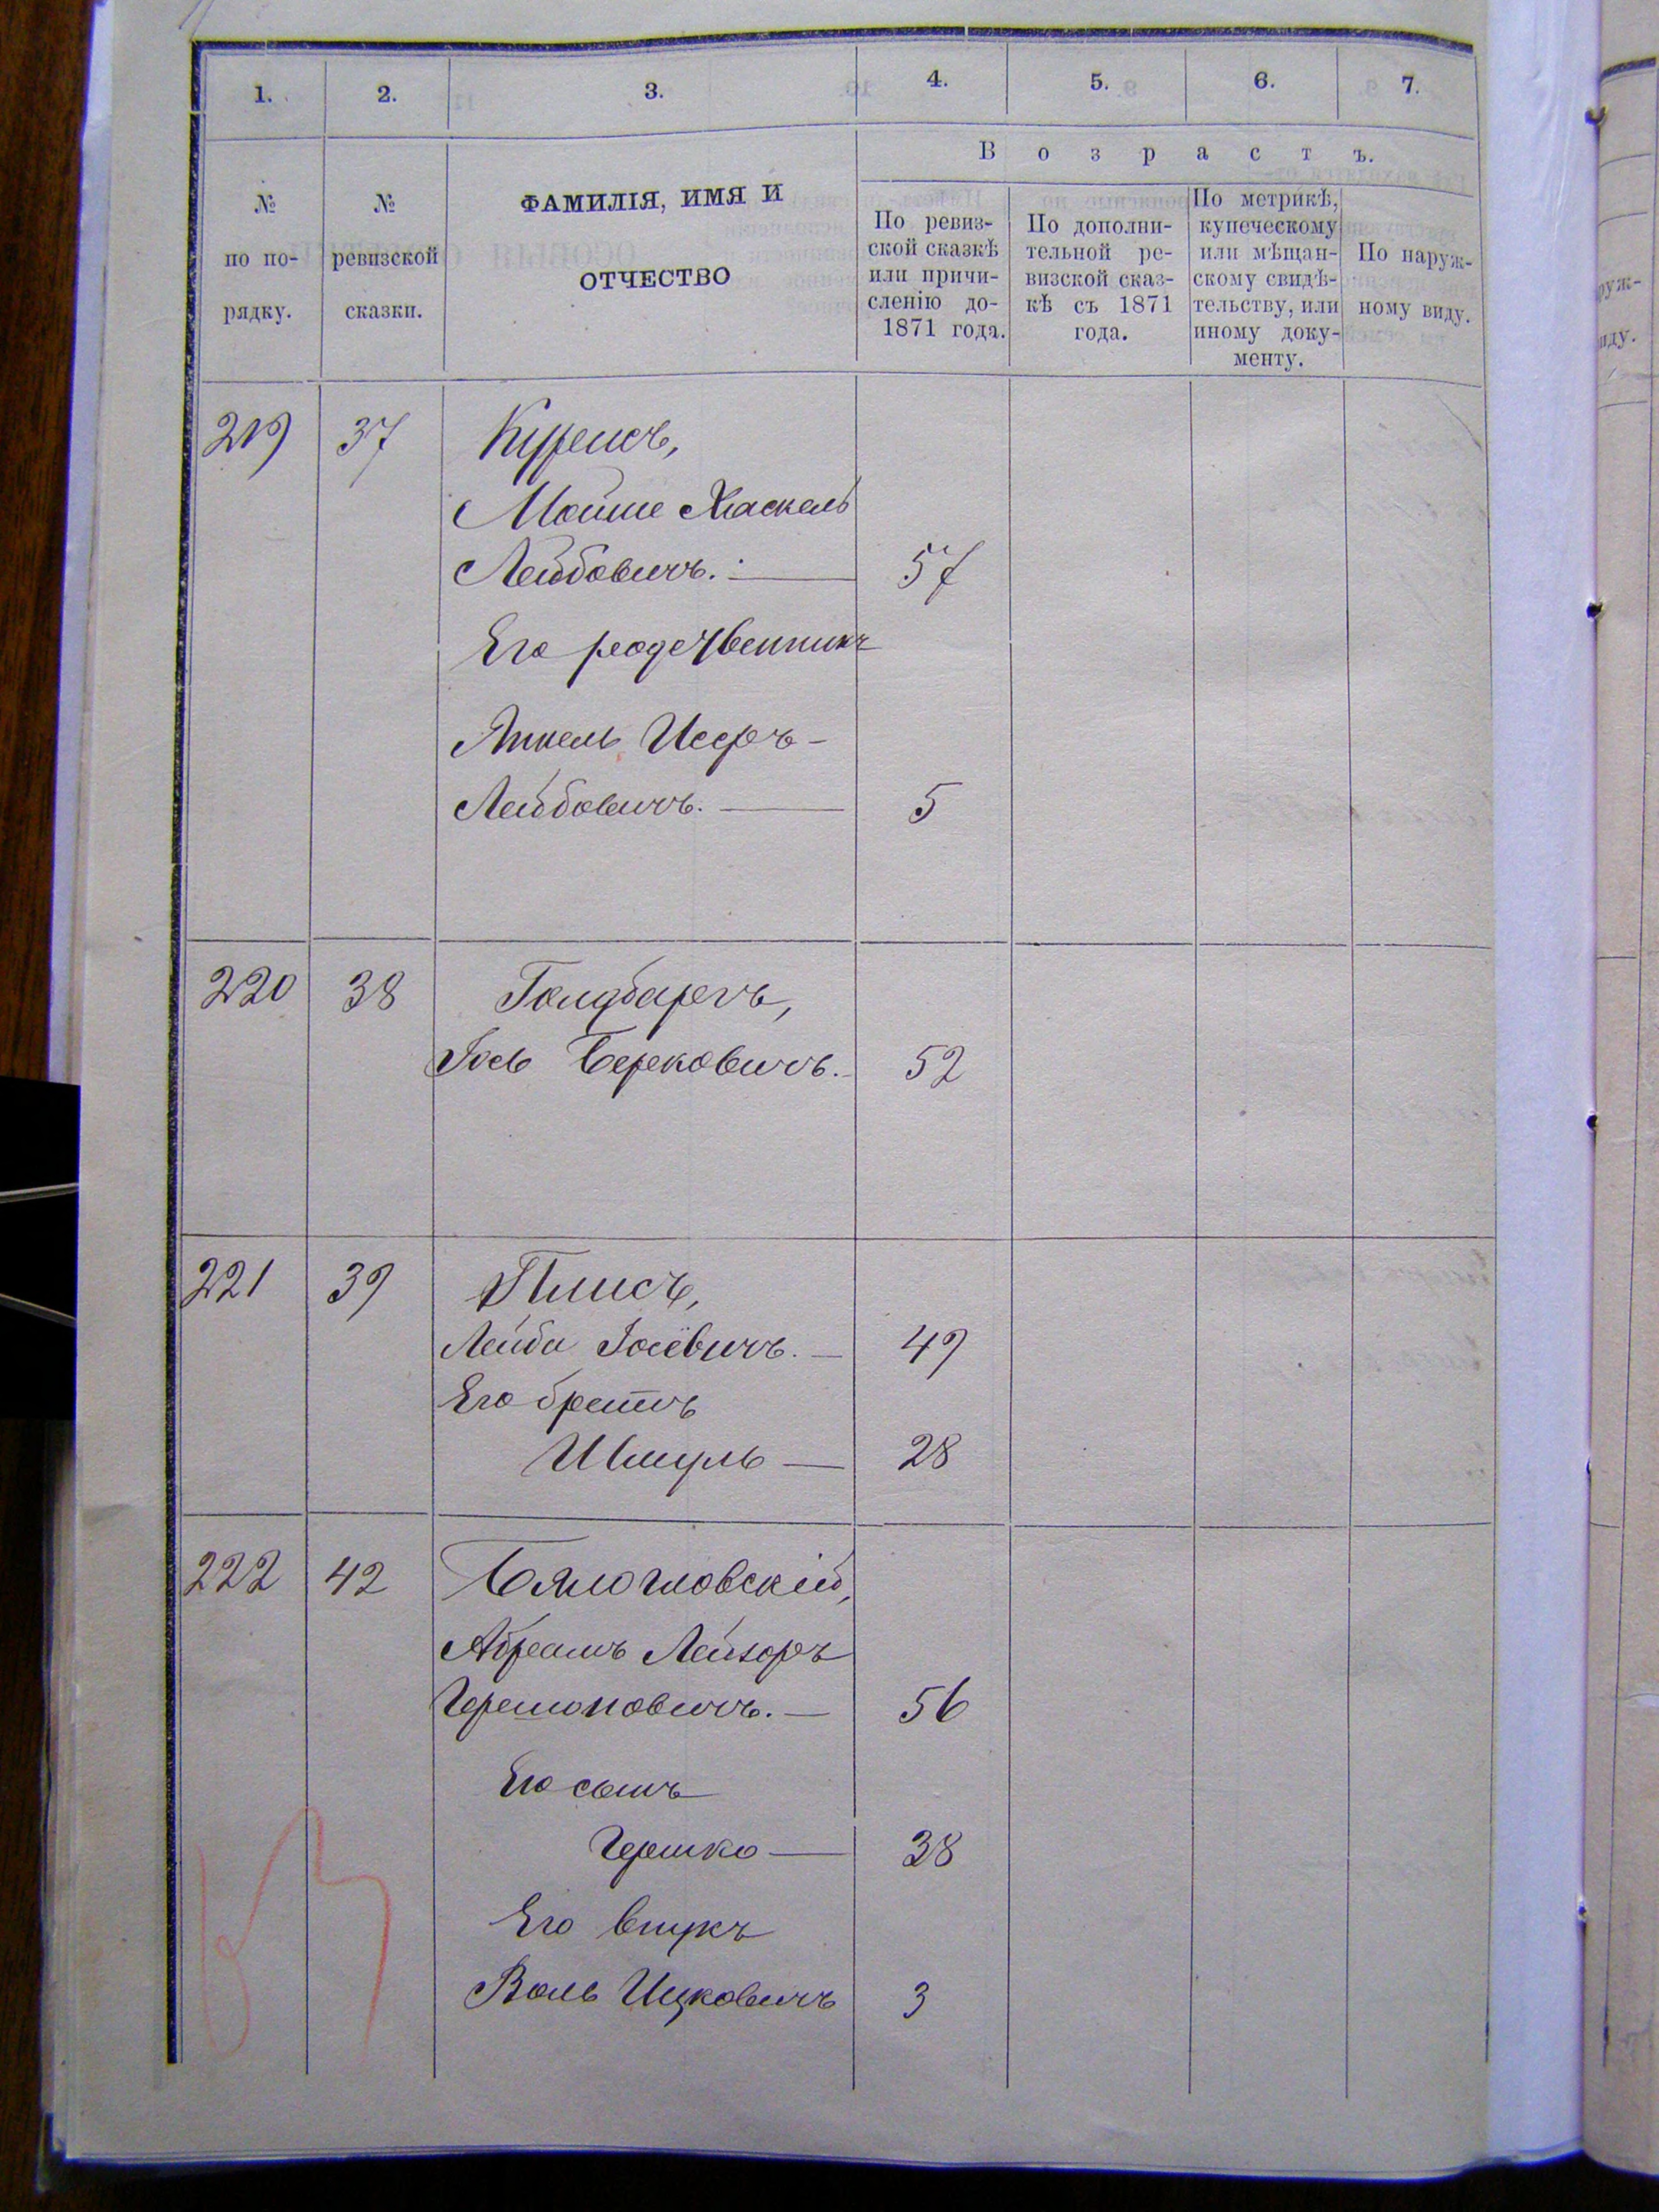 1. 2. 3. 4. 5. 6. 7.
В о з р а с т ъ.
№ по по-рядку.
№ ревизской сказки.
ФАМИЛІЯ, ИМЯ И
ОТЧЕСТВО
По ревиз-
ской сказкѣ
или причи-
сленію до-
1871 года.
По дополни-
тельной ре-
визской сказ-
кѣ съ 1871
года.
По метрикѣ,
купеческому
или мѣщан-
скому свидѣ-
тельству, или
иному доку-
менту.
По наруж-
ному виду.
219 37
Мойше Хаскель
Лейбовичъ. 57
Его родственникъ
Янкель Исеръ-
Лейбовичъ. 5
220 38 Голдбаргъ,
Іось Берковичъ. 52
221 39 Плисъ,
Лейба Іосевичъ. 49
Его братъ
Шмуль 28
222 42 Бялогловскій,
Абрамъ Лейзоръ
Гершоновичъ. 56
Его сынъ
Гершко 38
Его внукъ
Воль Ицковичъ 3
руж-
иду.